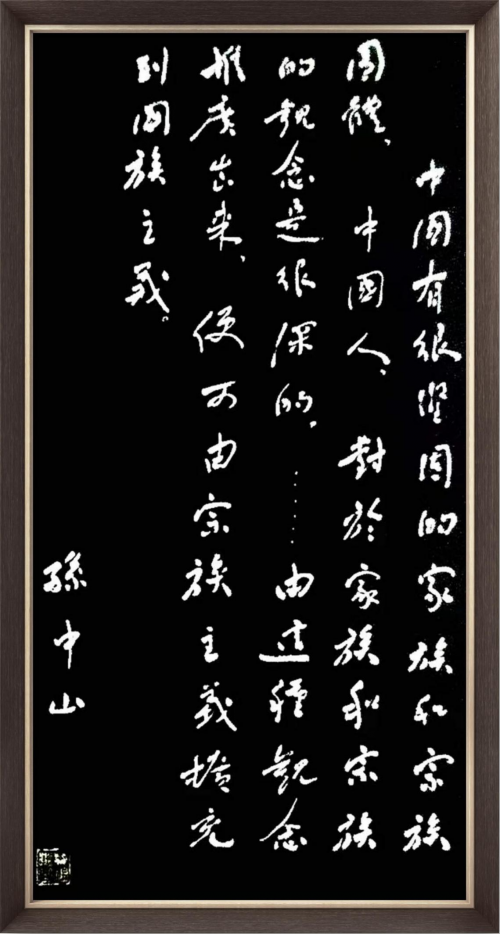 中國有很堅固的家族和宗族
團體、中國人、對於家族和宗族
的觀念是很深的，……由這種觀念
推廣出來、便可由宗族主義擴充
到國族主義。
孫中山